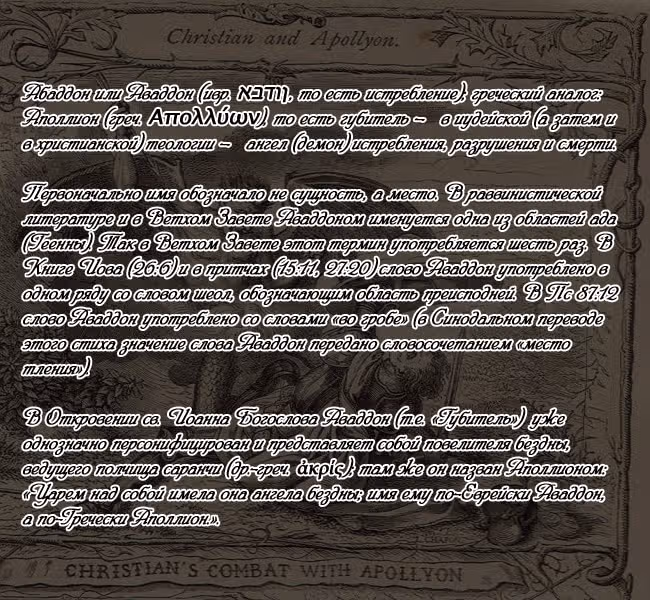 Christian and Apollyon.
Абаддон или Аваддон (ивр. אבדון, то есть истребление); греческий аналог:
Аполлион (греч. Απολλύων) то есть губитель — в иудейской (а затем и
в христианской) теологии — ангел (демон) истребления, разрушения и смерти.
Первоначально имя обозначало не сущность, а место. В раввинистической
литературе и в Ветхом Завете Аваддоном именуется одна из областей ада
(Геенны). Так в Ветхом Завете этот термин употребляется шесть раз. В
Книге Иова (26:6) и в притчах (15:11, 27:20) слово Аваддон употреблено в
одном ряду со словом шеол, обозначающим область преисподней. В Пс 87:12
слово Аваддон употреблено со словами «во гробе» (в Синодальном переводе
этого стиха значение слова Аваддон передано словосочетанием «место
тления»).
В Откровении св. Иоанна Богослова Аваддон (т.е. «Губитель») уже
однозначно персонифицирован и представляет собой повелителя бездны,
ведущего полчища саранчи (др.-греч. ἀκρίς); там же он назван Аполлионом:
«Царем над собой имела она ангела бездны; имя ему по-Еврейски Аваддон,
а по-Гречески Аполлион.».
CHRISTIAN'S COMBAT WITH APOLLYON